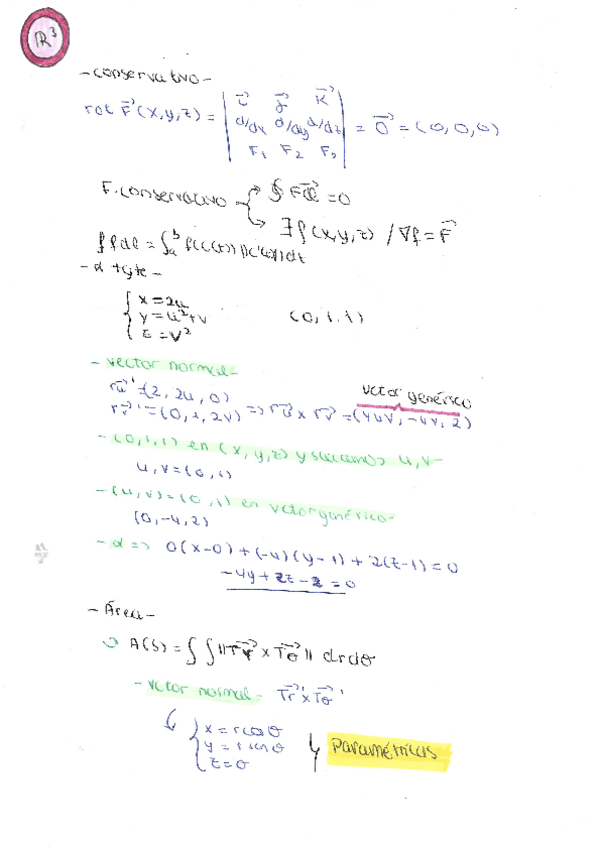 R³
- conservativo -
rot F⃗(x,y,z) = | i⃗ j⃗ k⃗ | = 0⃗ = (0,0,0)
d/dx d/dy d/dz
F₁ F₂ F₃
F. conservativo { ∮ F dl⃗ = 0
∃ f(x,y,z) / ∇f = F⃗
∫ f dl = ∫ₐᵇ f(c(t)) ||c'(t)|| dt
- α tgte -
{ x = 2u
y = u² + v (0,1,1)
z = v²
- vector normal -
ru⃗' = (2, 2u, 0) vector genérico
rv⃗' = (0, 1, 2v) => ru⃗ x rv⃗ = (4uv, -4v, 2)
- (0,1,1) en (x,y,z) y sacamos u,v -
u,v = (0,1)
- (u,v) = (0,1) en vector genérico -
(0,-4,2)
- α => 0(x-0) + (-4)(y-1) + 2(z-1) = 0
-4y + 2z - 2 = 0
- Área -
A(S) = ∫∫ ||Tr⃗ x Tθ⃗|| dr dθ
- vector normal - Tr⃗' x Tθ⃗'
{ x = r cos θ
y = r sen θ } paramétricas
z = θ